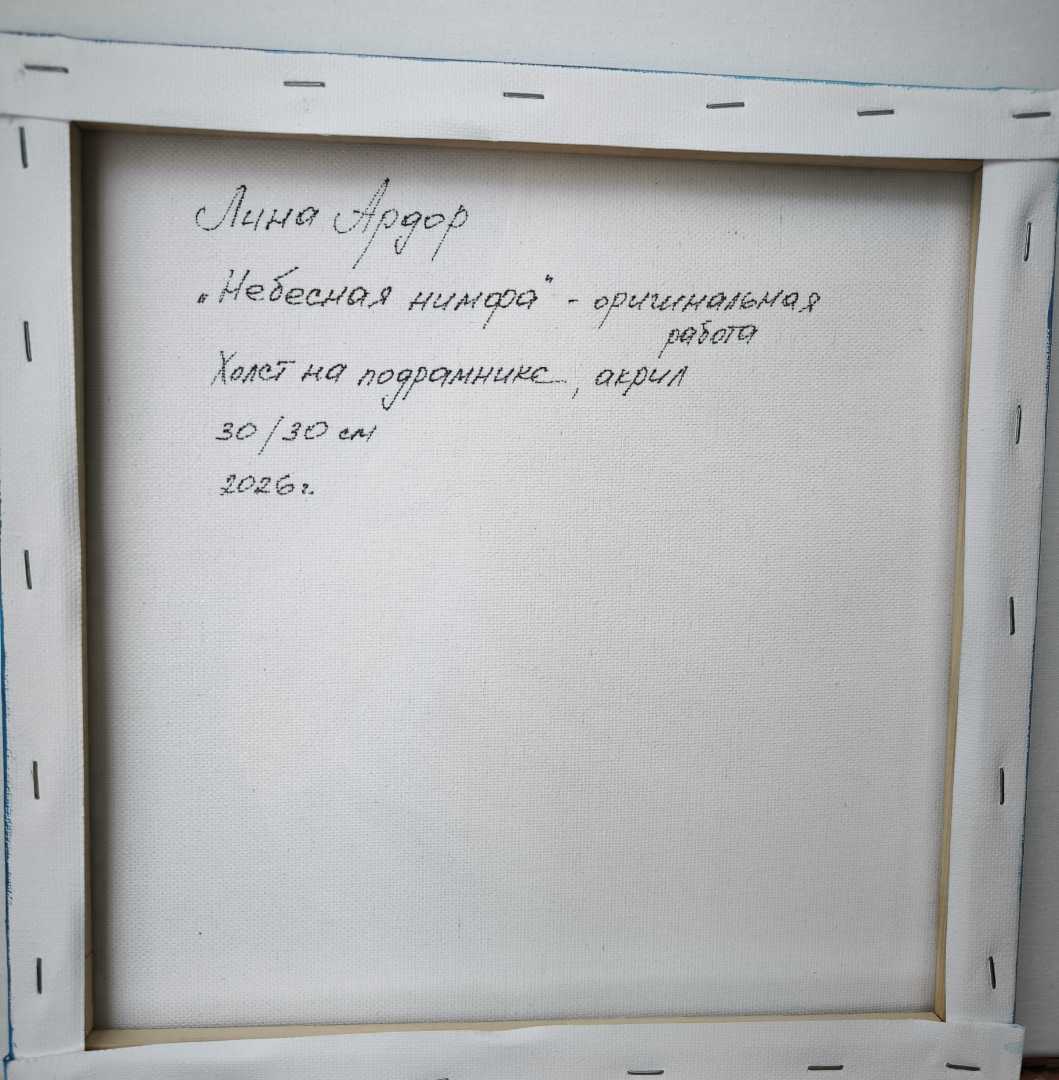 Лина Ардор
„Небесная нимфа" - оригинальная
работа
Холст на подрамнике, акрил
30/30 см
2026 г.